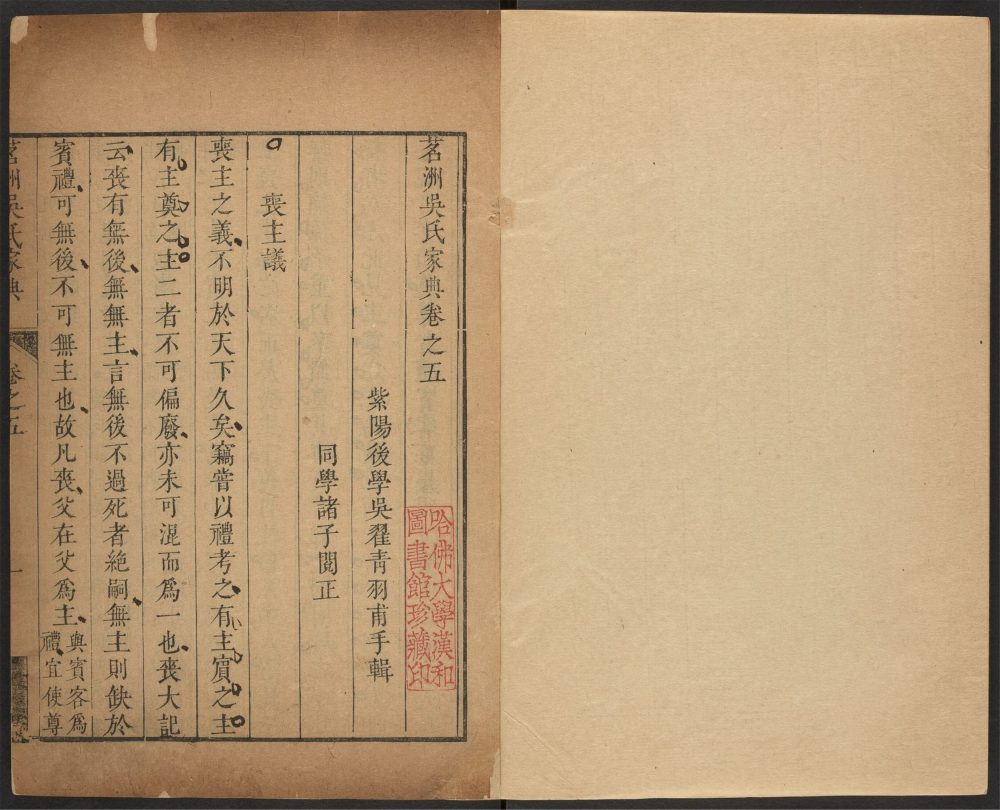 茗洲吳氏家典卷之五
紫陽後學吳翟青羽甫手輯
同學諸子閱正
喪主議
喪主之義不明於天下久矣竊甞以禮考之有主賓之主
有主奠之主二者不可偏廢亦未可混而爲一也喪大記
云喪有無後無無主言無後不過死者絶嗣無主則缺於
賓禮可無後不可無主也故凡喪父在父爲主與賓客爲
禮宜使尊
茗洲吳氏家典 卷之五 一
哈佛大學漢和
圖書館珍藏印